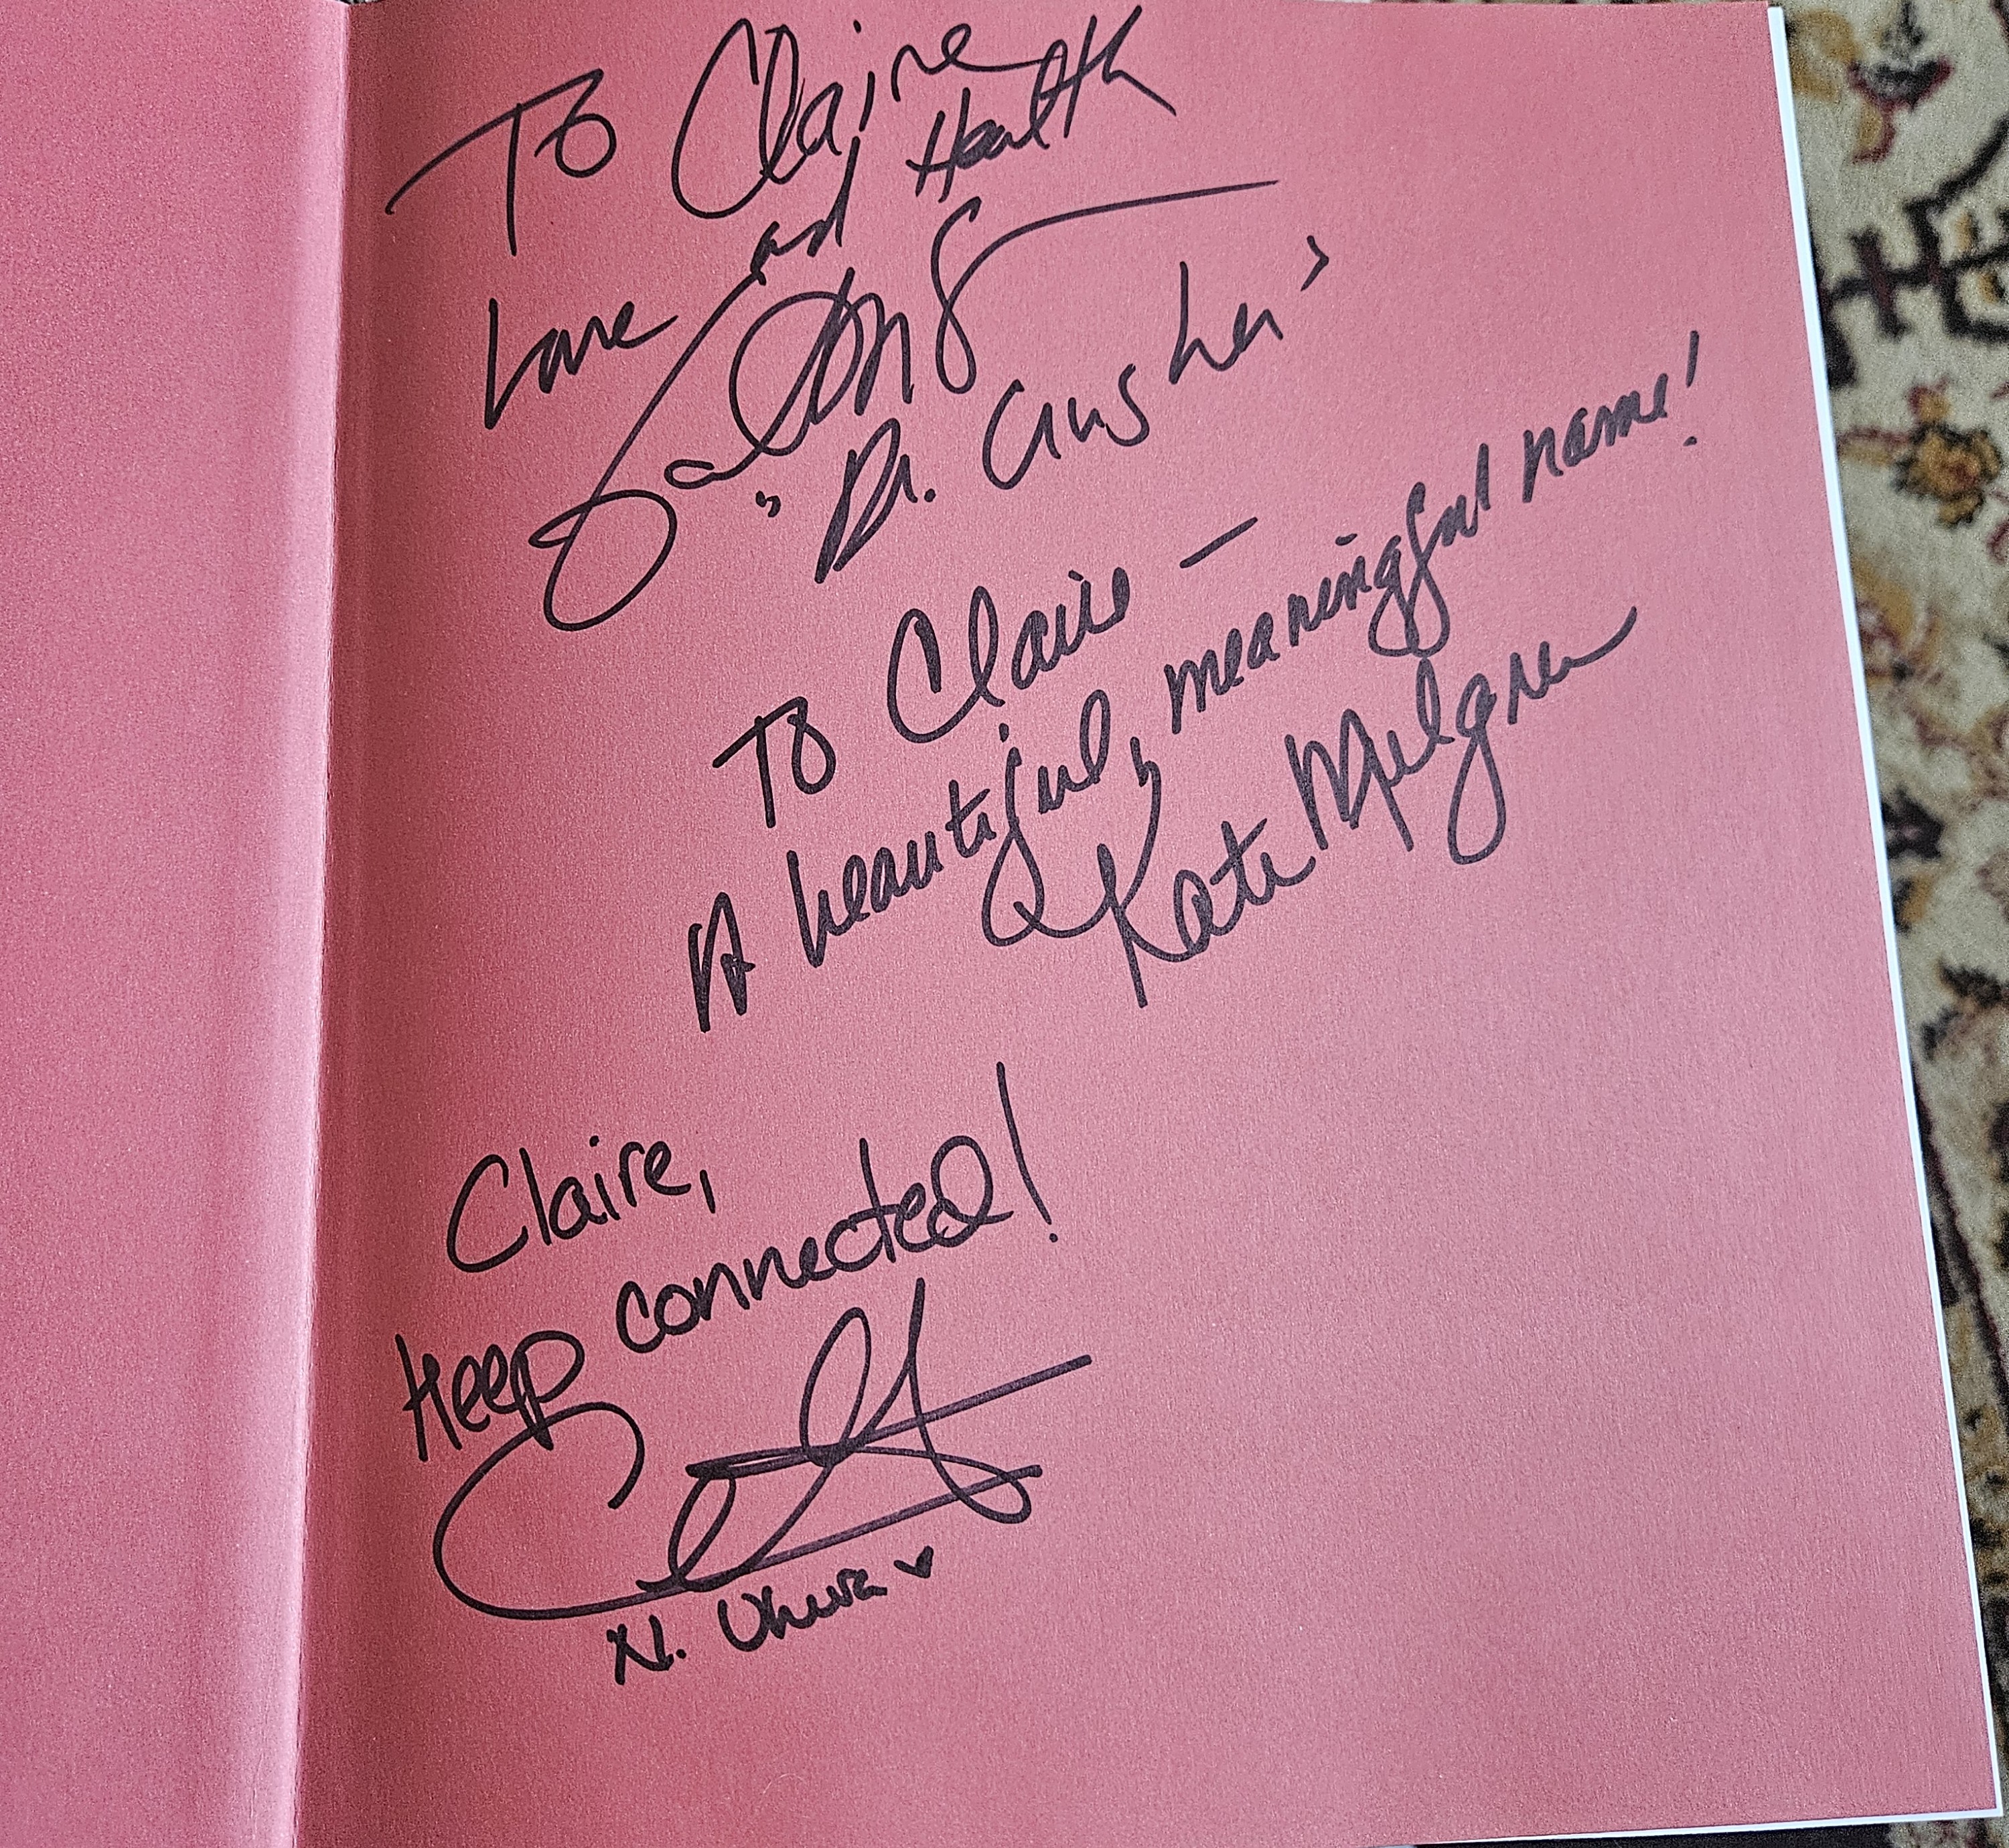 To Claire
Love and Health
"Dr. Crusher"
To Claire —
A beautiful, meaningful name!
Kate Mulgrew
Claire,
Keep connected!
N. Uhura ♥